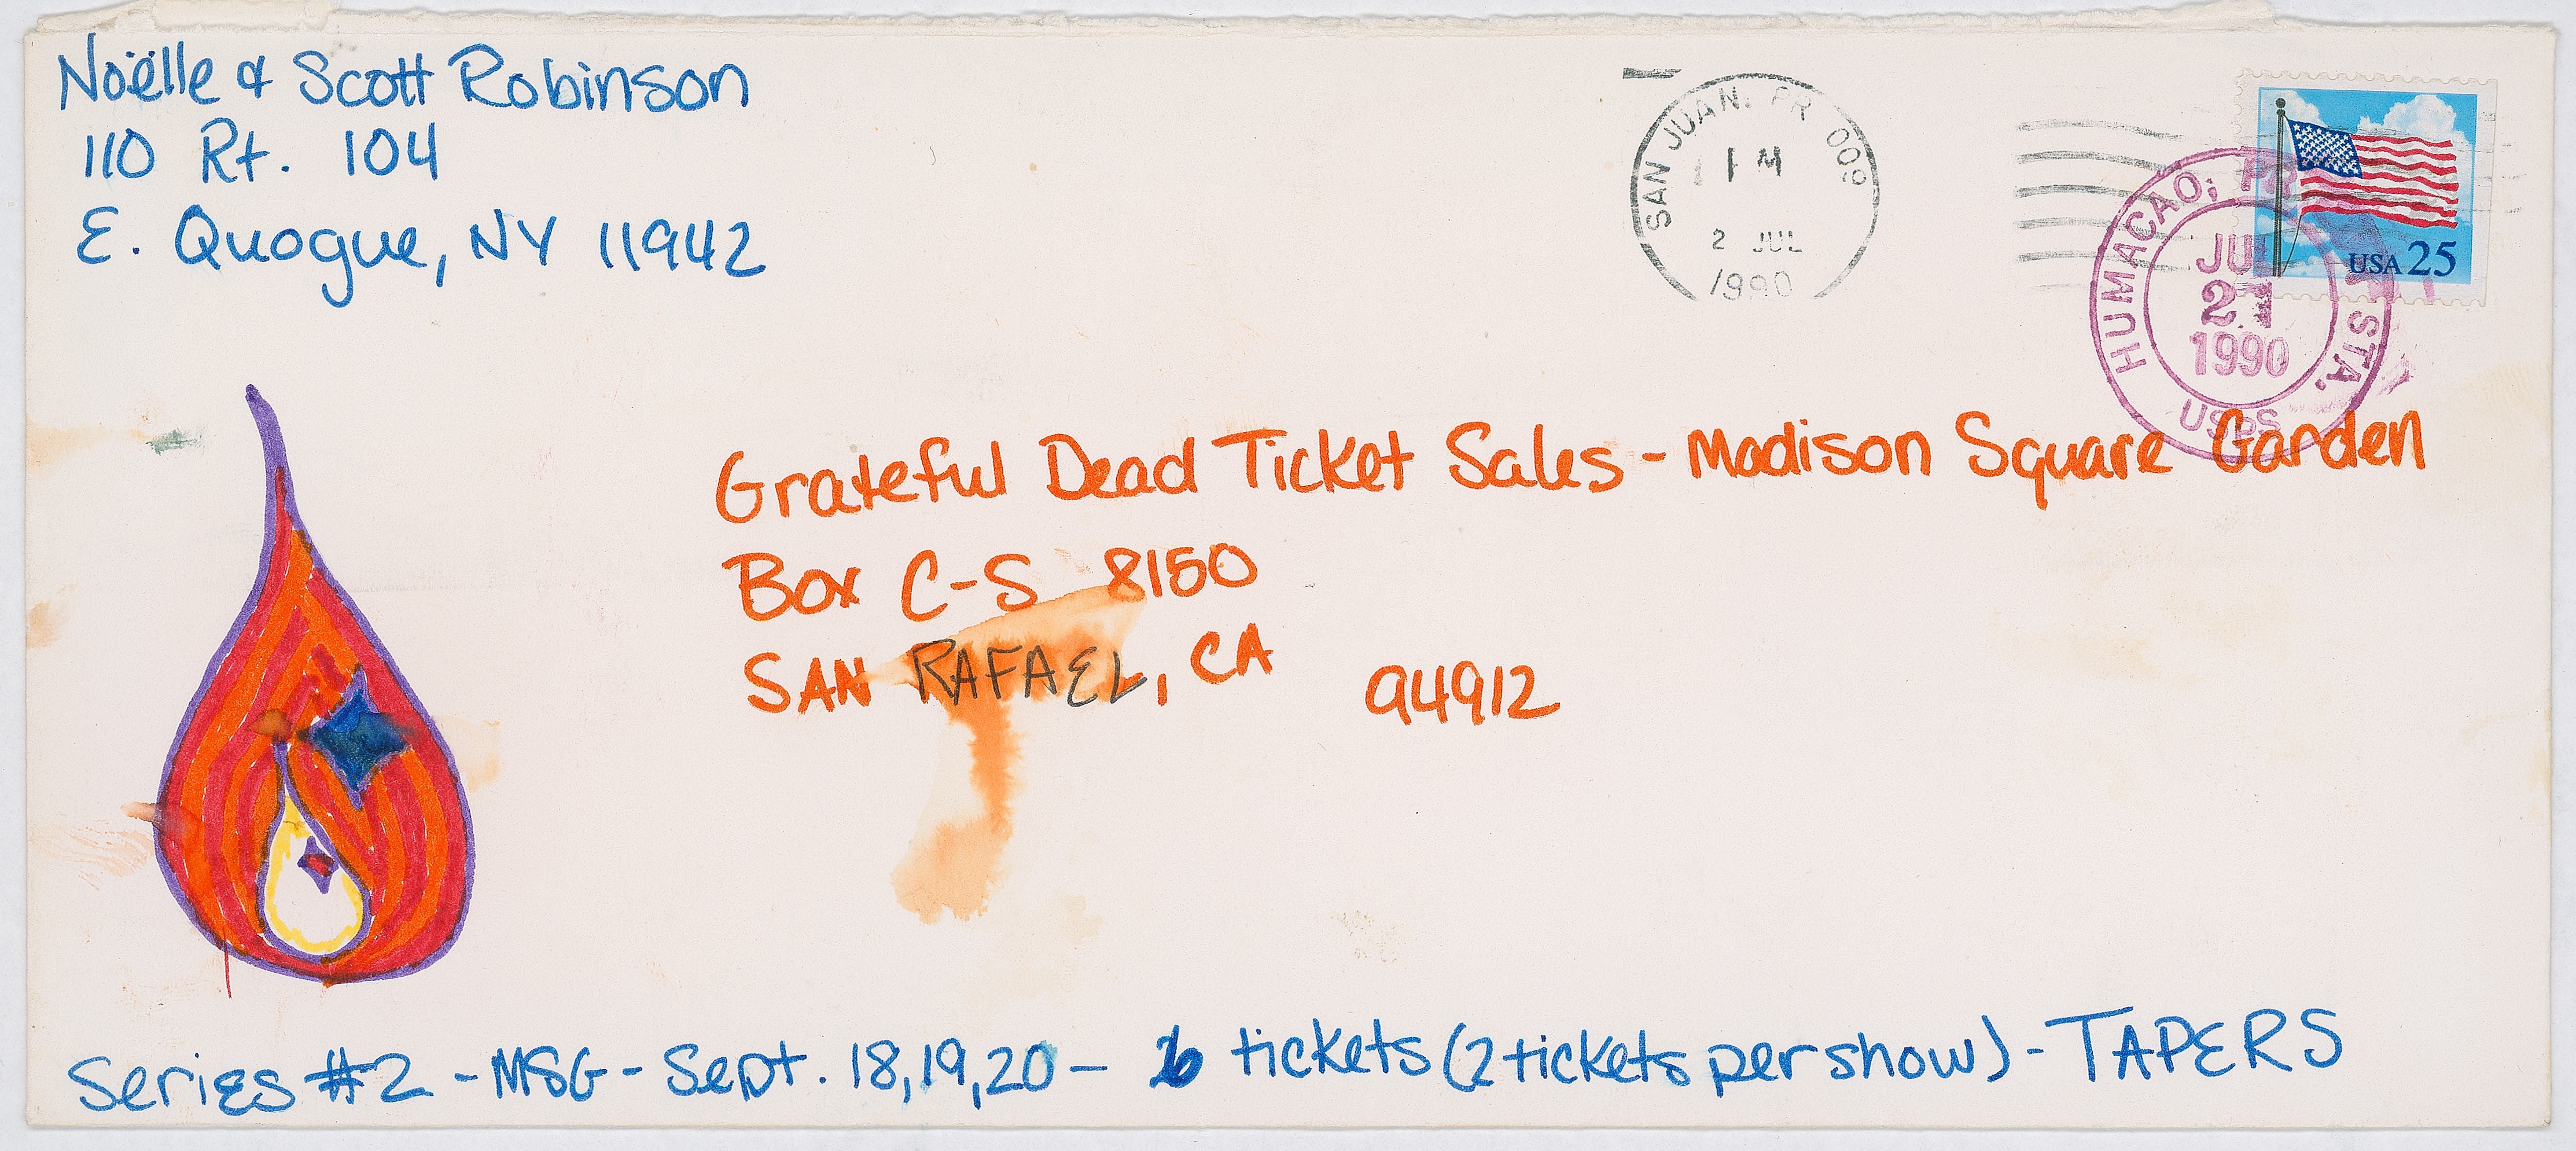 Noëlle & Scott Robinson
110 Rt. 104
E. Quogue, NY 11942
SAN JUAN. PR 009
PM
2 JUL
1990
USA 25
HUMACAO, PR
STA.
JUL
1990
USPS
Grateful Dead Ticket Sales - Madison Square Garden
Box C-S 8150
SAN RAFAEL, CA 94912
Series #2 - MSG - Sept. 18,19,20 - 6 tickets (2 tickets per show) - TAPERS